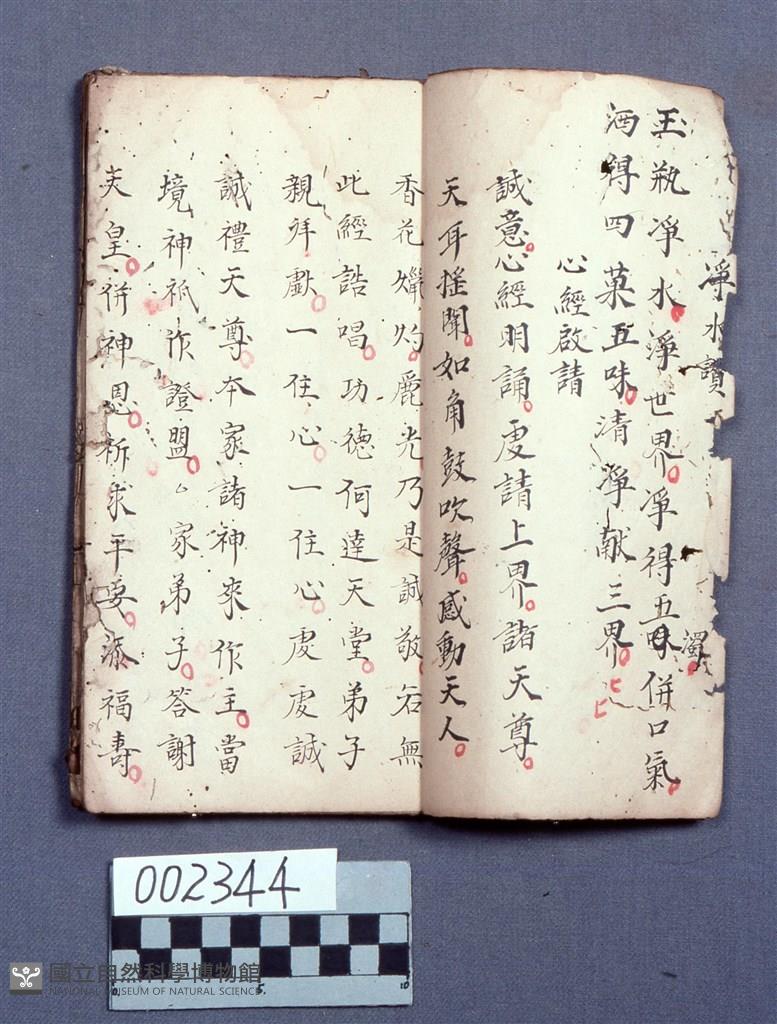 淨水讚
玉瓶凈水淨世界凈得五味併口氣
濁
洒得四菓五味清淨献三界
心經啟請
誠意心經明誦虔請上界諸天尊
天耳搖聞如角鼓吹聲感動天人
香花爉灼麗光乃是誠敬若無
此經誥唱功德何達天堂弟子
親拜獻一住心一住心虔虔誠
誠禮天尊本家諸神來作主當
境神祇作證盟家弟子答謝
天皇併神恩祈求平安添福壽
002344
國立自然科學博物館
NATIONAL MUSEUM OF NATURAL SCIENCE